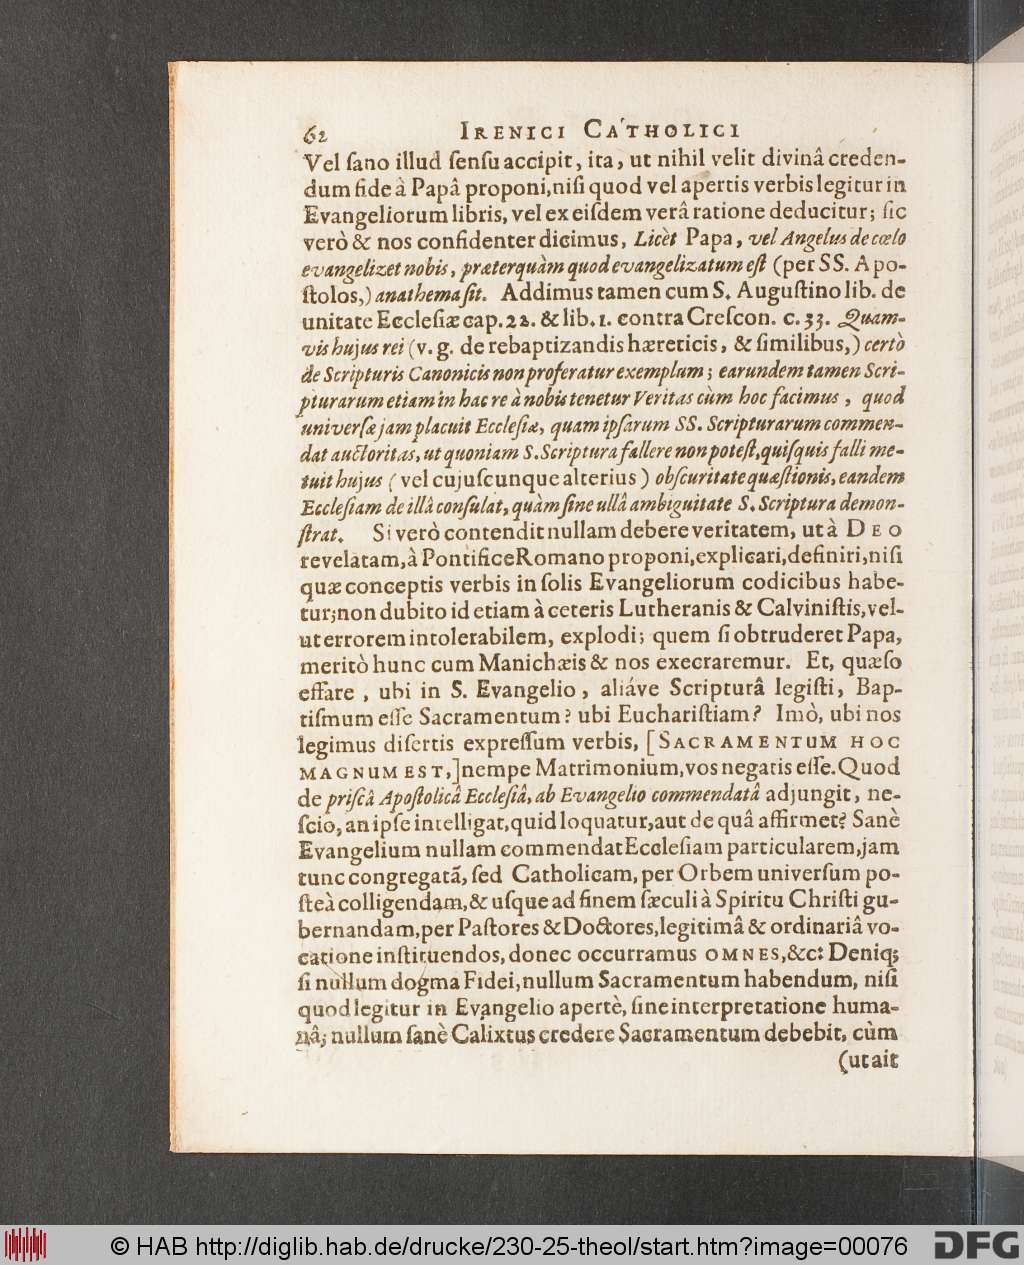 62 IRENICI CATHOLICI
Vel ſano illud ſenſu accipit, ita, ut nihil velit divinâ creden-
dum fide à Papâ proponi, niſi quod vel apertis verbis legitur in
Evangeliorum libris, vel ex eiſdem verâ ratione deducitur; ſic
verò & nos confidenter dicimus, Licèt Papa, vel Angelus de cœlo
evangelizet nobis, præterquàm quod evangelizatum eſt (per SS. Apo-
ſtolos,) anathema ſit. Addimus tamen cum S. Auguſtino lib. de
unitate Eccleſiæ cap. 22. & lib. 1. contra Creſcon. c. 33. Quam-
vis hujus rei (v. g. de rebaptizandis hæreticis, & ſimilibus,) certò
de Scripturis Canonicis non proferatur exemplum; earundem tamen Scri-
pturarum etiam in hac re à nobis tenetur Veritas cùm hoc facimus, quod
univerſæ jam placuit Eccleſiæ, quam ipſarum SS. Scripturarum commen-
dat auctoritas, ut quoniam S. Scriptura fallere non poteſt, quiſquis falli me-
tuit hujus (vel cujuſcunque alterius) obſcuritate quæſtionis, eandem
Eccleſiam de illâ conſulat, quàm ſine ullâ ambiguitate S. Scriptura demon-
ſtrat. Si verò contendit nullam debere veritatem, ut à DEO
revelatam, à Pontifice Romano proponi, explicari, definiri, niſi
quæ conceptis verbis in ſolis Evangeliorum codicibus habe-
tur; non dubito id etiam à ceteris Lutheranis & Calviniſtis, vel-
ut errorem intolerabilem, explodi; quem ſi obtruderet Papa,
meritò hunc cum Manichæis & nos execraremur. Et, quæſo
effare, ubi in S. Evangelio, aliáve Scripturâ legiſti, Bap-
tiſmum eſſe Sacramentum? ubi Euchariſtiam? Imò, ubi nos
legimus diſertis expreſſum verbis, [SACRAMENTUM HOC
MAGNUM EST,] nempe Matrimonium, vos negatis eſſe. Quod
de priſcâ Apoſtolicâ Eccleſiâ, ab Evangelio commendatâ adjungit, ne-
ſcio, an ipſe intelligat, quid loquatur, aut de quâ affirmet? Sanè
Evangelium nullam commendat Eccleſiam particularem, jam
tunc congregatã, ſed Catholicam, per Orbem univerſum po-
ſteà colligendam, & uſque ad finem ſæculi à Spiritu Chriſti gu-
bernandam, per Paſtores & Doctores, legitimâ & ordinariâ vo-
catione inſtituendos, donec occurramus OMNES, &c: Deniq;
ſi nullum dogma Fidei, nullum Sacramentum habendum, niſi
quod legitur in Evangelio apertè, ſine interpretatione huma-
nâ; nullum ſanè Calixtus credere Sacramentum debebit, cùm
(ut ait
© HAB http://diglib.hab.de/drucke/230-25-theol/start.htm?image=00076
DFG